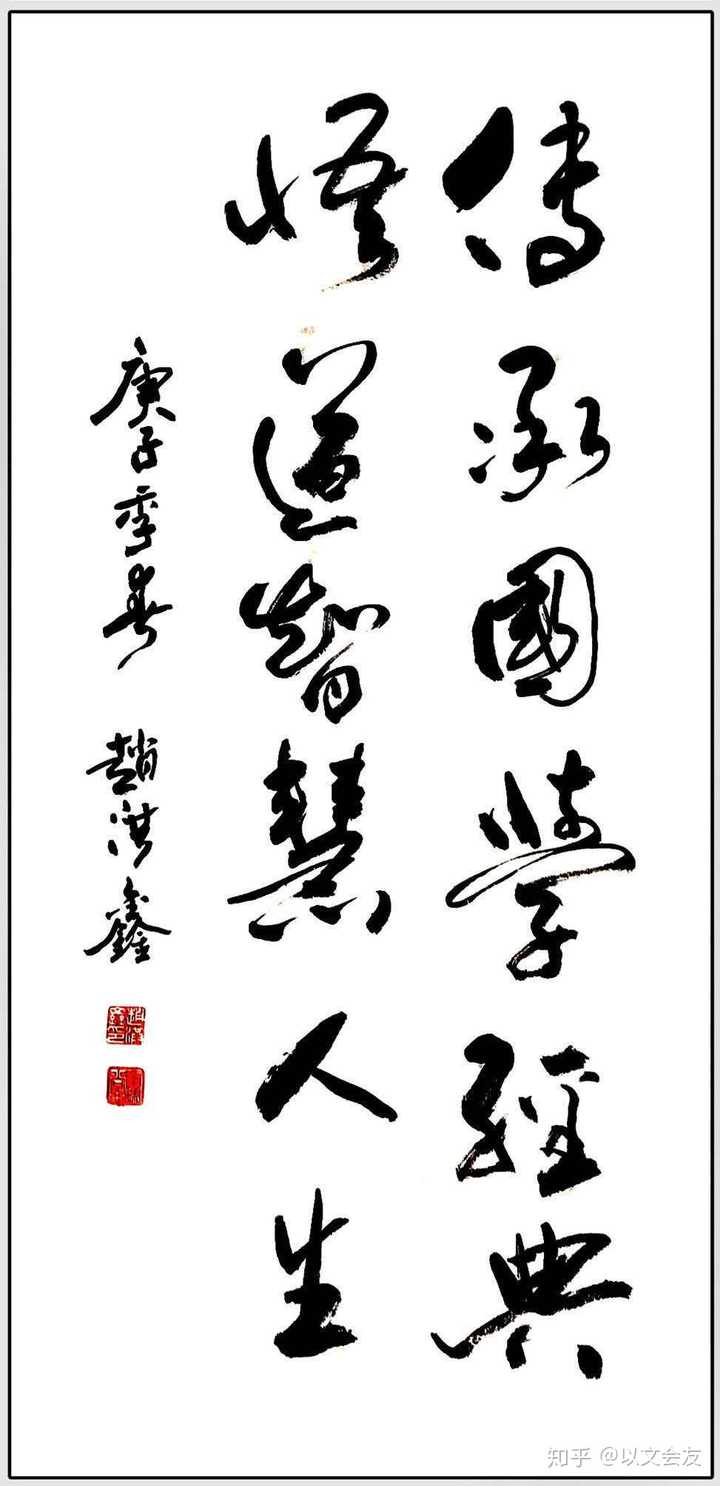 傳承國學經典
悟道智慧人生
庚子季春 趙洪鑫
知乎 @以文会友